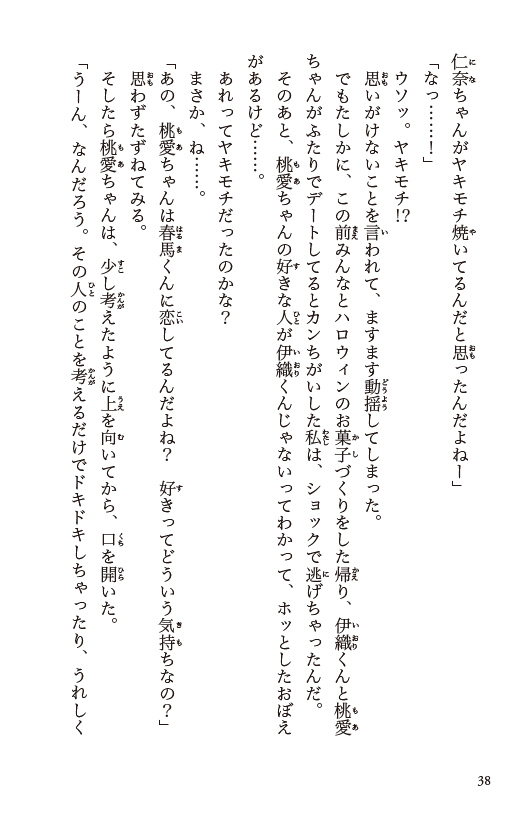 仁奈ちゃんがヤキモチ焼いてるんだと思ったんだよねー」
「なっ……！」
ウソッ。ヤキモチ!?
思いがけないことを言われて、ますます動揺してしまった。
でもたしかに、この前みんなとハロウィンのお菓子づくりをした帰り、伊織くんと桃愛
ちゃんがふたりでデートしてるとカンちがいした私は、ショックで逃げちゃったんだ。
そのあと、桃愛ちゃんの好きな人が伊織くんじゃないってわかって、ホッとしたおぼえ
があるけど……。
あれってヤキモチだったのかな？
まさか、ね……。
「あの、桃愛ちゃんは春馬くんに恋してるんだよね？　好きってどういう気持ちなの？」
思わずたずねてみる。
そしたら桃愛ちゃんは、少し考えたように上を向いてから、口を開いた。
「うーん、なんだろう。その人のことを考えるだけでドキドキしちゃったり、うれしく
38